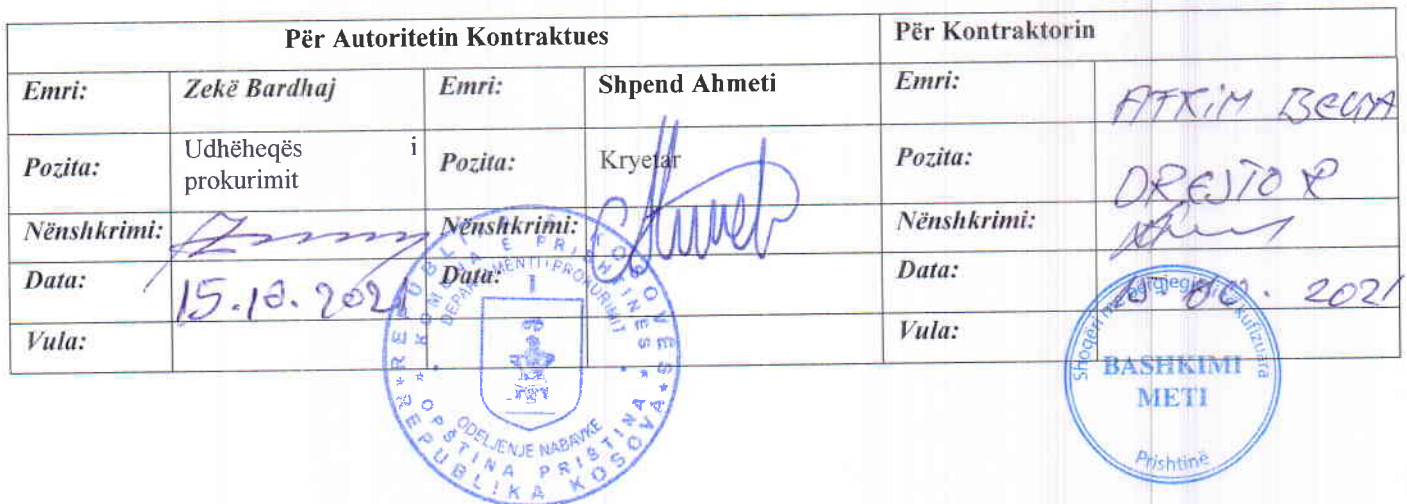 Për Autoritetin Kontraktues Për Kontraktorin
Emri: Zekë Bardhaj Emri: Shpend Ahmeti Emri:
Pozita: Udhëheqës i prokurimit Pozita: Kryetar Pozita: DREJTOR
Nënshkrimi: Nënshkrimi: Nënshkrimi:
Data: 15.10.2021 Data: Data: 2021
Vula: Vula:
REPUBLIKA E KOSOVËS
KOMUNA E PRISHTINËS
DEPARTAMENTI I PROKURIMIT
ODELJENJE NABAVKE
OPŠTINA PRIŠTINA
REPUBLIKA KOSOVA
Shoqëri me përgjegjësi të kufizuara
BASHKIMI
METI
Prishtinë